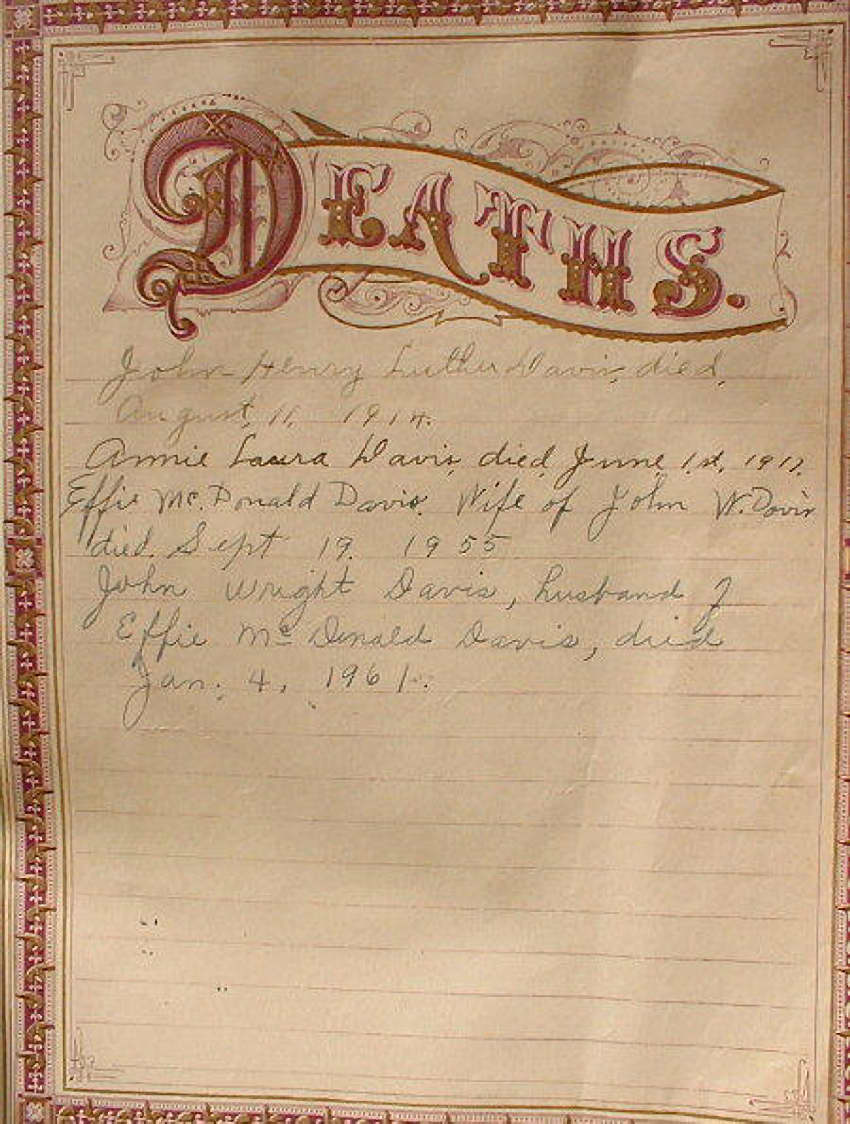 DEATHS.
John Henry Luther Davis, died,
August, 11, 1914.
Annie Laura Davis, died, June, 1st, 1917.
Effie Mc. Donald Davis. Wife of John W. Davis
died. Sept 19. 1955
John Wright Davis, husband of
Effie Mc Donald Davis, died
Jan. 4, 1961.